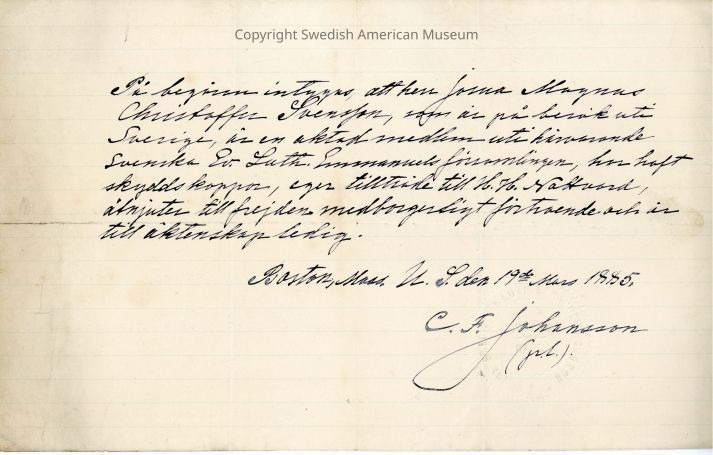 Copyright Swedish American Museum
På begäran intygas, att herr Josua Magnus
Christoffer Svensson, som är på besök uti
Sverige, är en aktad medlem uti härvarande
Svenska Ev. Luth. Emmanuels församlingen, har haft
skyddskoppor, eger tillträde till H. H. Nattvard,
åtnjuter till frejden medborgerligt förtroende och är
till äktenskap ledig.
Boston, Mass. U. S. den 19de Mars 1885.
C. F. Johansson